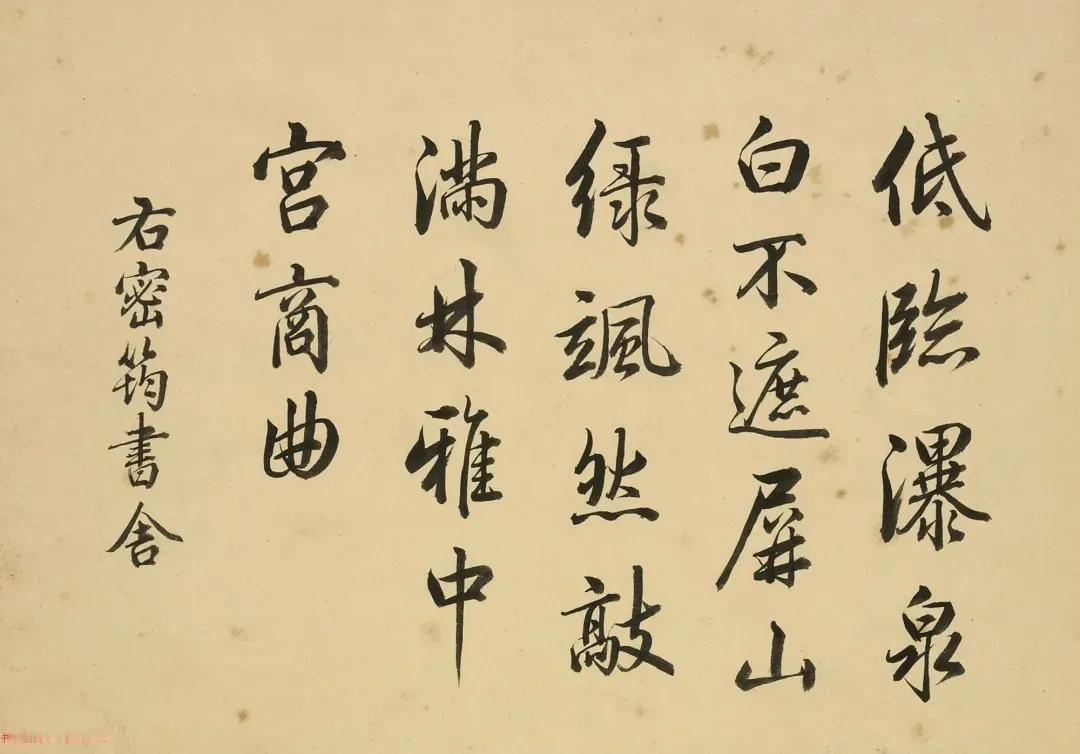 低臨瀑泉
白不遮屏山
緑颯然敲
滿林雅中
宮商曲
右密筠書舍